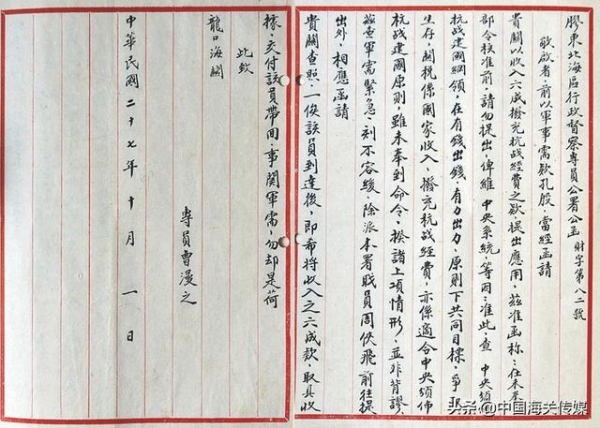 膠東北海區行政督察專員公署公函 財字第八二號
敬啟者前以軍事需款孔殷，當經函請
貴關以收入六成撥充抗战經費之欵，提出應用，茲准函称：在未奉
部令核准前，請勿提出，俾維 中央系統，等因：准此，查 中央頒佈
抗战建國綱領，在有錢出錢，有力出力，原則下共同目標，爭取
生存，關税係國家收入，撥充抗战經費，亦係適合中央頒佈
抗战建國原則，雖未奉到命令，揆諸上項情形，並非背謬，
茲查軍需緊急，刻不容緩，除派本署職員周俠飛前往提
出外，相應函請
貴關查照，一俟該員到達後，即希將收入之六成款，取具收
據，交付該員帶回，事関軍需，勿却是荷
此致
龍口海關
專員曹漫之
中華民國二十七年十月一日
头条@中国海关传媒